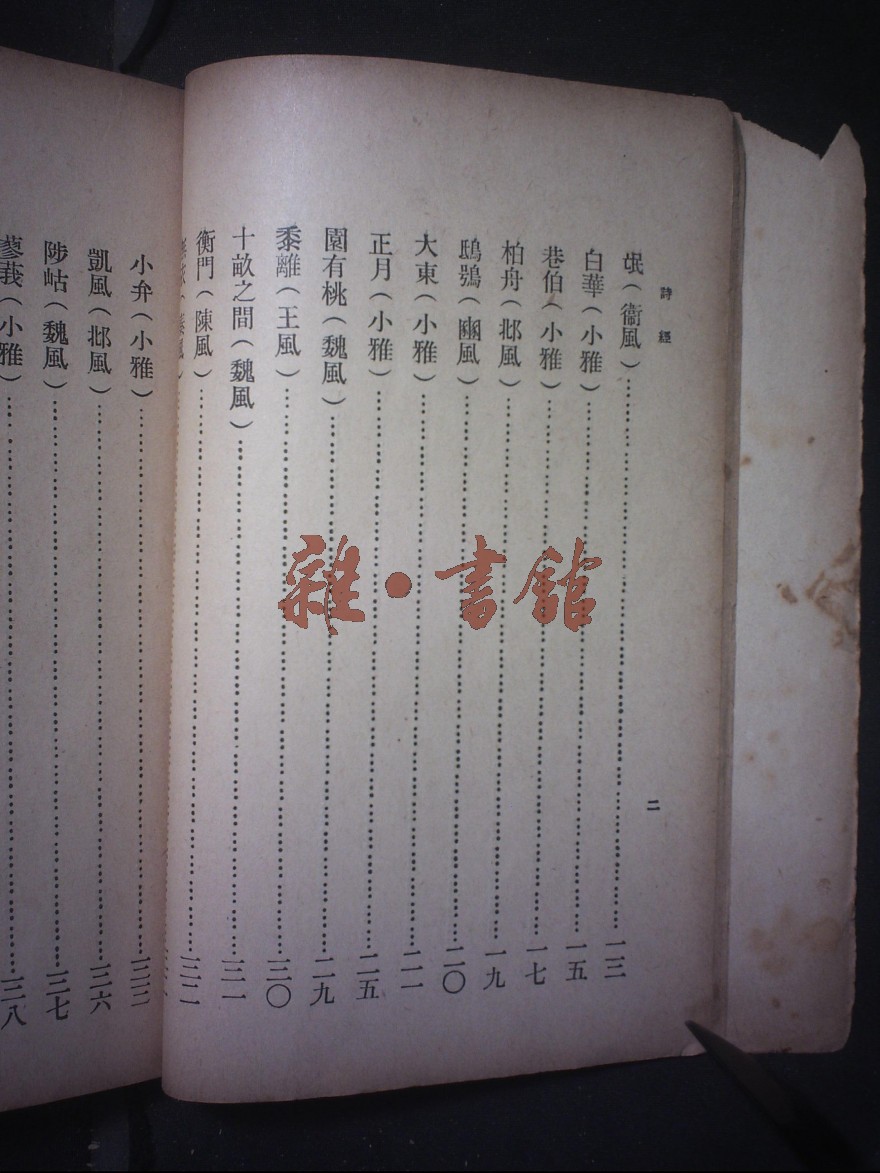 詩經
二
氓(衞風)……一三
白華(小雅)……一五
巷伯(小雅)……一七
柏舟(邶風)……一九
鴟鴞(豳風)……二〇
大東(小雅)……二一
正月(小雅)……二五
園有桃(魏風)……二九
黍離(王風)……三〇
十畝之間(魏風)……三一
衡門(陳風)……三二
小弁(小雅)……三三
凱風(邶風)……三六
陟岵(魏風)……三七
蓼莪(小雅)……三八
雜·書館